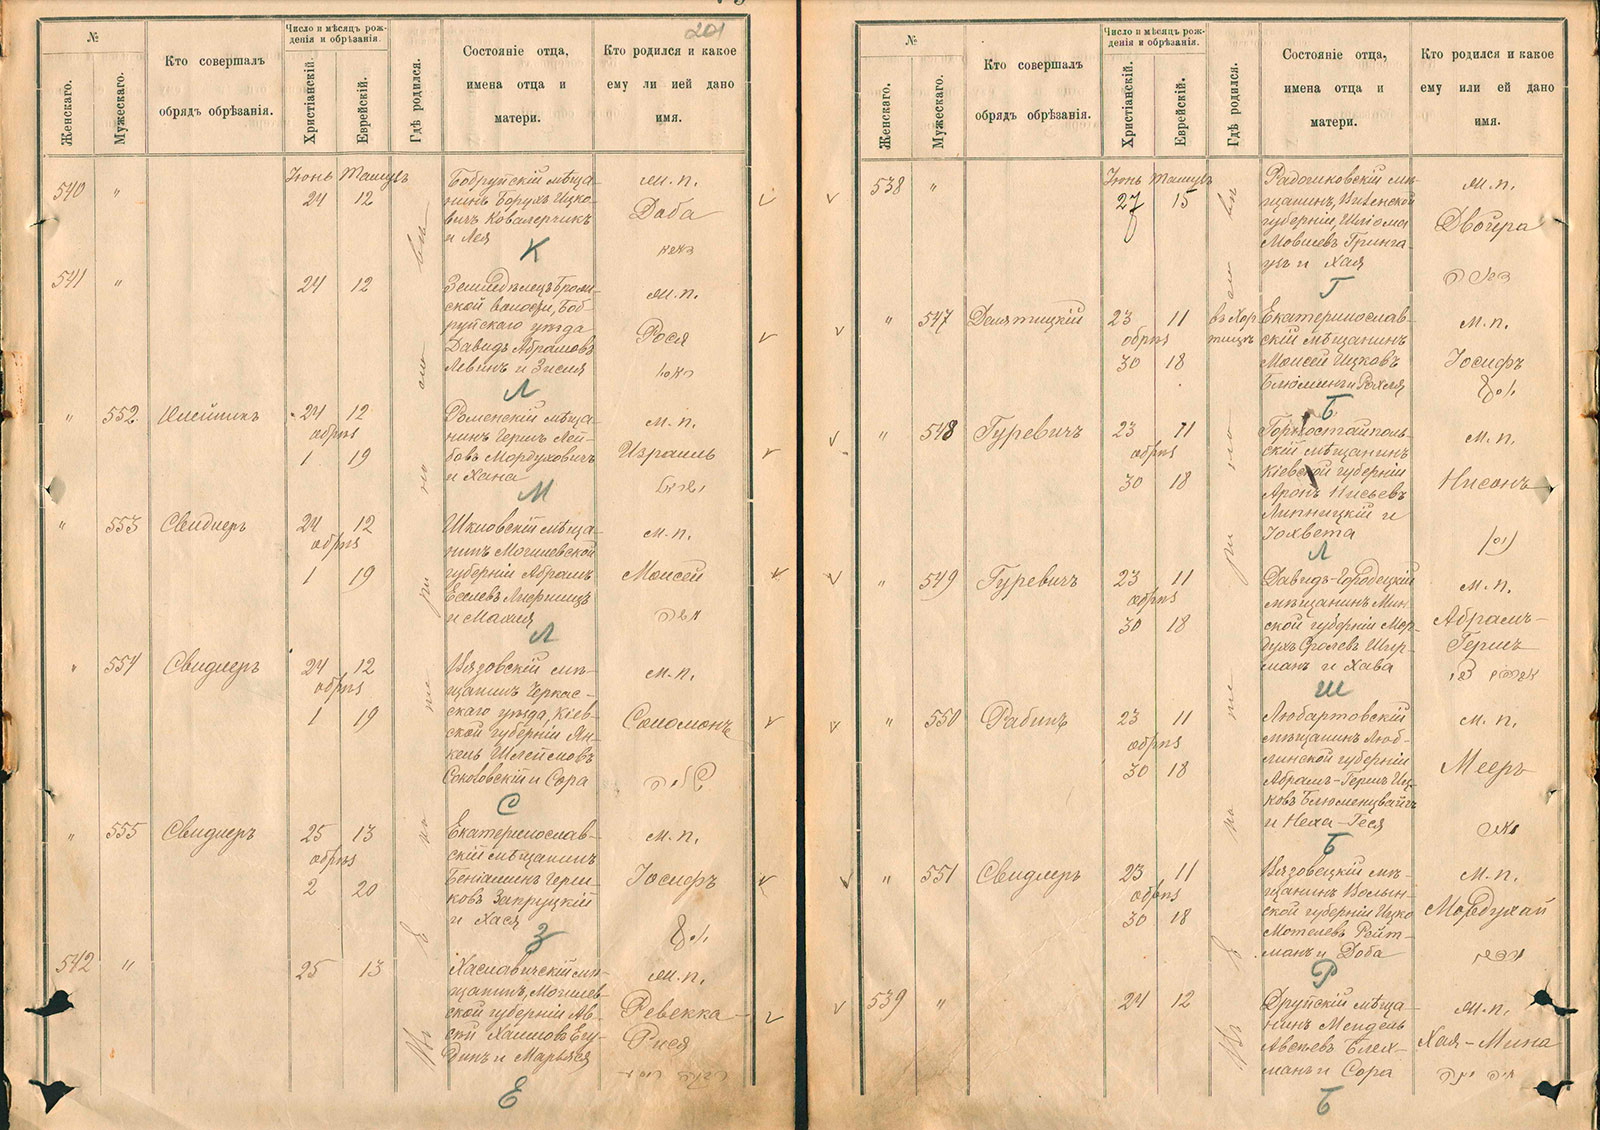 201
№
Женскаго.
Мужескаго.
Кто совершалъ
обрядъ обрѣзанія.
Число и мѣсяцъ рож-
денія и обрѣзанія.
Христіанскій.
Еврейскій.
Гдѣ родился.
Состояніе отца,
имена отца и
матери.
Кто родился и какое
ему ли ией дано
имя.
Іюнь Тамузъ
540 " 24 12
Бобруйскій мѣща-
нинъ Борухъ Ицко-
вичъ Ковалерчикъ
и Лея
К
м.п.
Доба
541 " 24 12
Земледѣлецъ
ской волости, Боб-
руйскаго уѣзда
Давидъ Абрамовъ
Левинъ и Зисля
Л
м.п.
Рося
" 552 24 12
обрѣз
1 19
Роменскій мѣща-
нинъ Гершъ Лей-
бовъ Мордуховичъ
и Хана
М
м.п.
Израиль
" 553 Свидлеръ 24 12
обрѣз
1 19
Шкловскій мѣща-
нинъ Могилевской
губерніи Абрамъ
и
Л
м.п.
Моисей
משה
" 554 Свидлеръ 24 12
обрѣз
1 19
мѣ-
щанинъ Черкас-
скаго уѣзда, Кіев-
ской губерніи Ян-
кель Шлеймовъ
Соколовскій и Сора
С
м.п.
Соломонъ
שלמה
" 555 Свидлеръ 25 13
обрѣз
2 20
Екатеринослав-
скій мѣщанинъ
Беніаминъ Герш-
ковъ Запруцкій
и Хася
З
м.п.
Іосифъ
542 " 25 13
Хаславичскій мѣ-
щанинъ, Могилев-
ской губерніи
Хаимовъ Егу-
динъ и Марьяся
Е
м.п.
Ревекка-
Рися
№
Женскаго.
Мужескаго.
Кто совершалъ
обрядъ обрѣзанія.
Число и мѣсяцъ рож-
денія и обрѣзанія.
Христіанскій.
Еврейскій.
Гдѣ родился.
Состояніе отца,
имена отца и
матери.
Кто родился и какое
ему или ей дано
имя.
Іюнь Тамузъ
538 " 27 15
Радошковскій мѣ-
щанинъ, Виленской
губерніи, Шлiома
Мовшевъ Гринга-
узъ и Хая
Г
м.п.
Двойра
" 547 23 11
обрѣз
30 18
въ Хор
тицѣ
Екатеринослав-
скій мѣщанинъ
Моисей Ицковъ
Блюминъ и Рохля
Б
м.п.
Іосифъ
" 548 Гуревичъ 23 11
обрѣз
30 18
Горностайполь-
скій мѣщанинъ
Кіевской губерніи
Аронъ
Липницкій и
Іохвета
Л
м.п.
Нисонъ
ניסן
" 549 Гуревичъ 23 11
обрѣз
30 18
Давидъ-Городецкій
мѣщанинъ Мин-
ской губерніи Мор-
духъ Сролевъ
и Хава
Ш
м.п.
Абрамъ-
Гершъ
" 550 Рабинъ 23 11
обрѣз
30 18
Любартовскій
мѣщанинъ Люб-
линской губерніи
Абрамъ-Гершъ Иц-
ковъ Блюменцвайгъ
и Неха-Геся
Б
м.п.
Мееръ
מאיר
" 551 Свидлеръ 23 11
обрѣз
30 18
мѣ-
щанинъ Волын-
ской губерніи Ицко
Мотелевъ Ройт-
манъ и Доба
Р
м.п.
Мордухай
מרדכי
539 " 24 12
Друйскій мѣща-
нинъ Мендель
Блех-
манъ и Сора
Б
м.п.
Хая-Мина